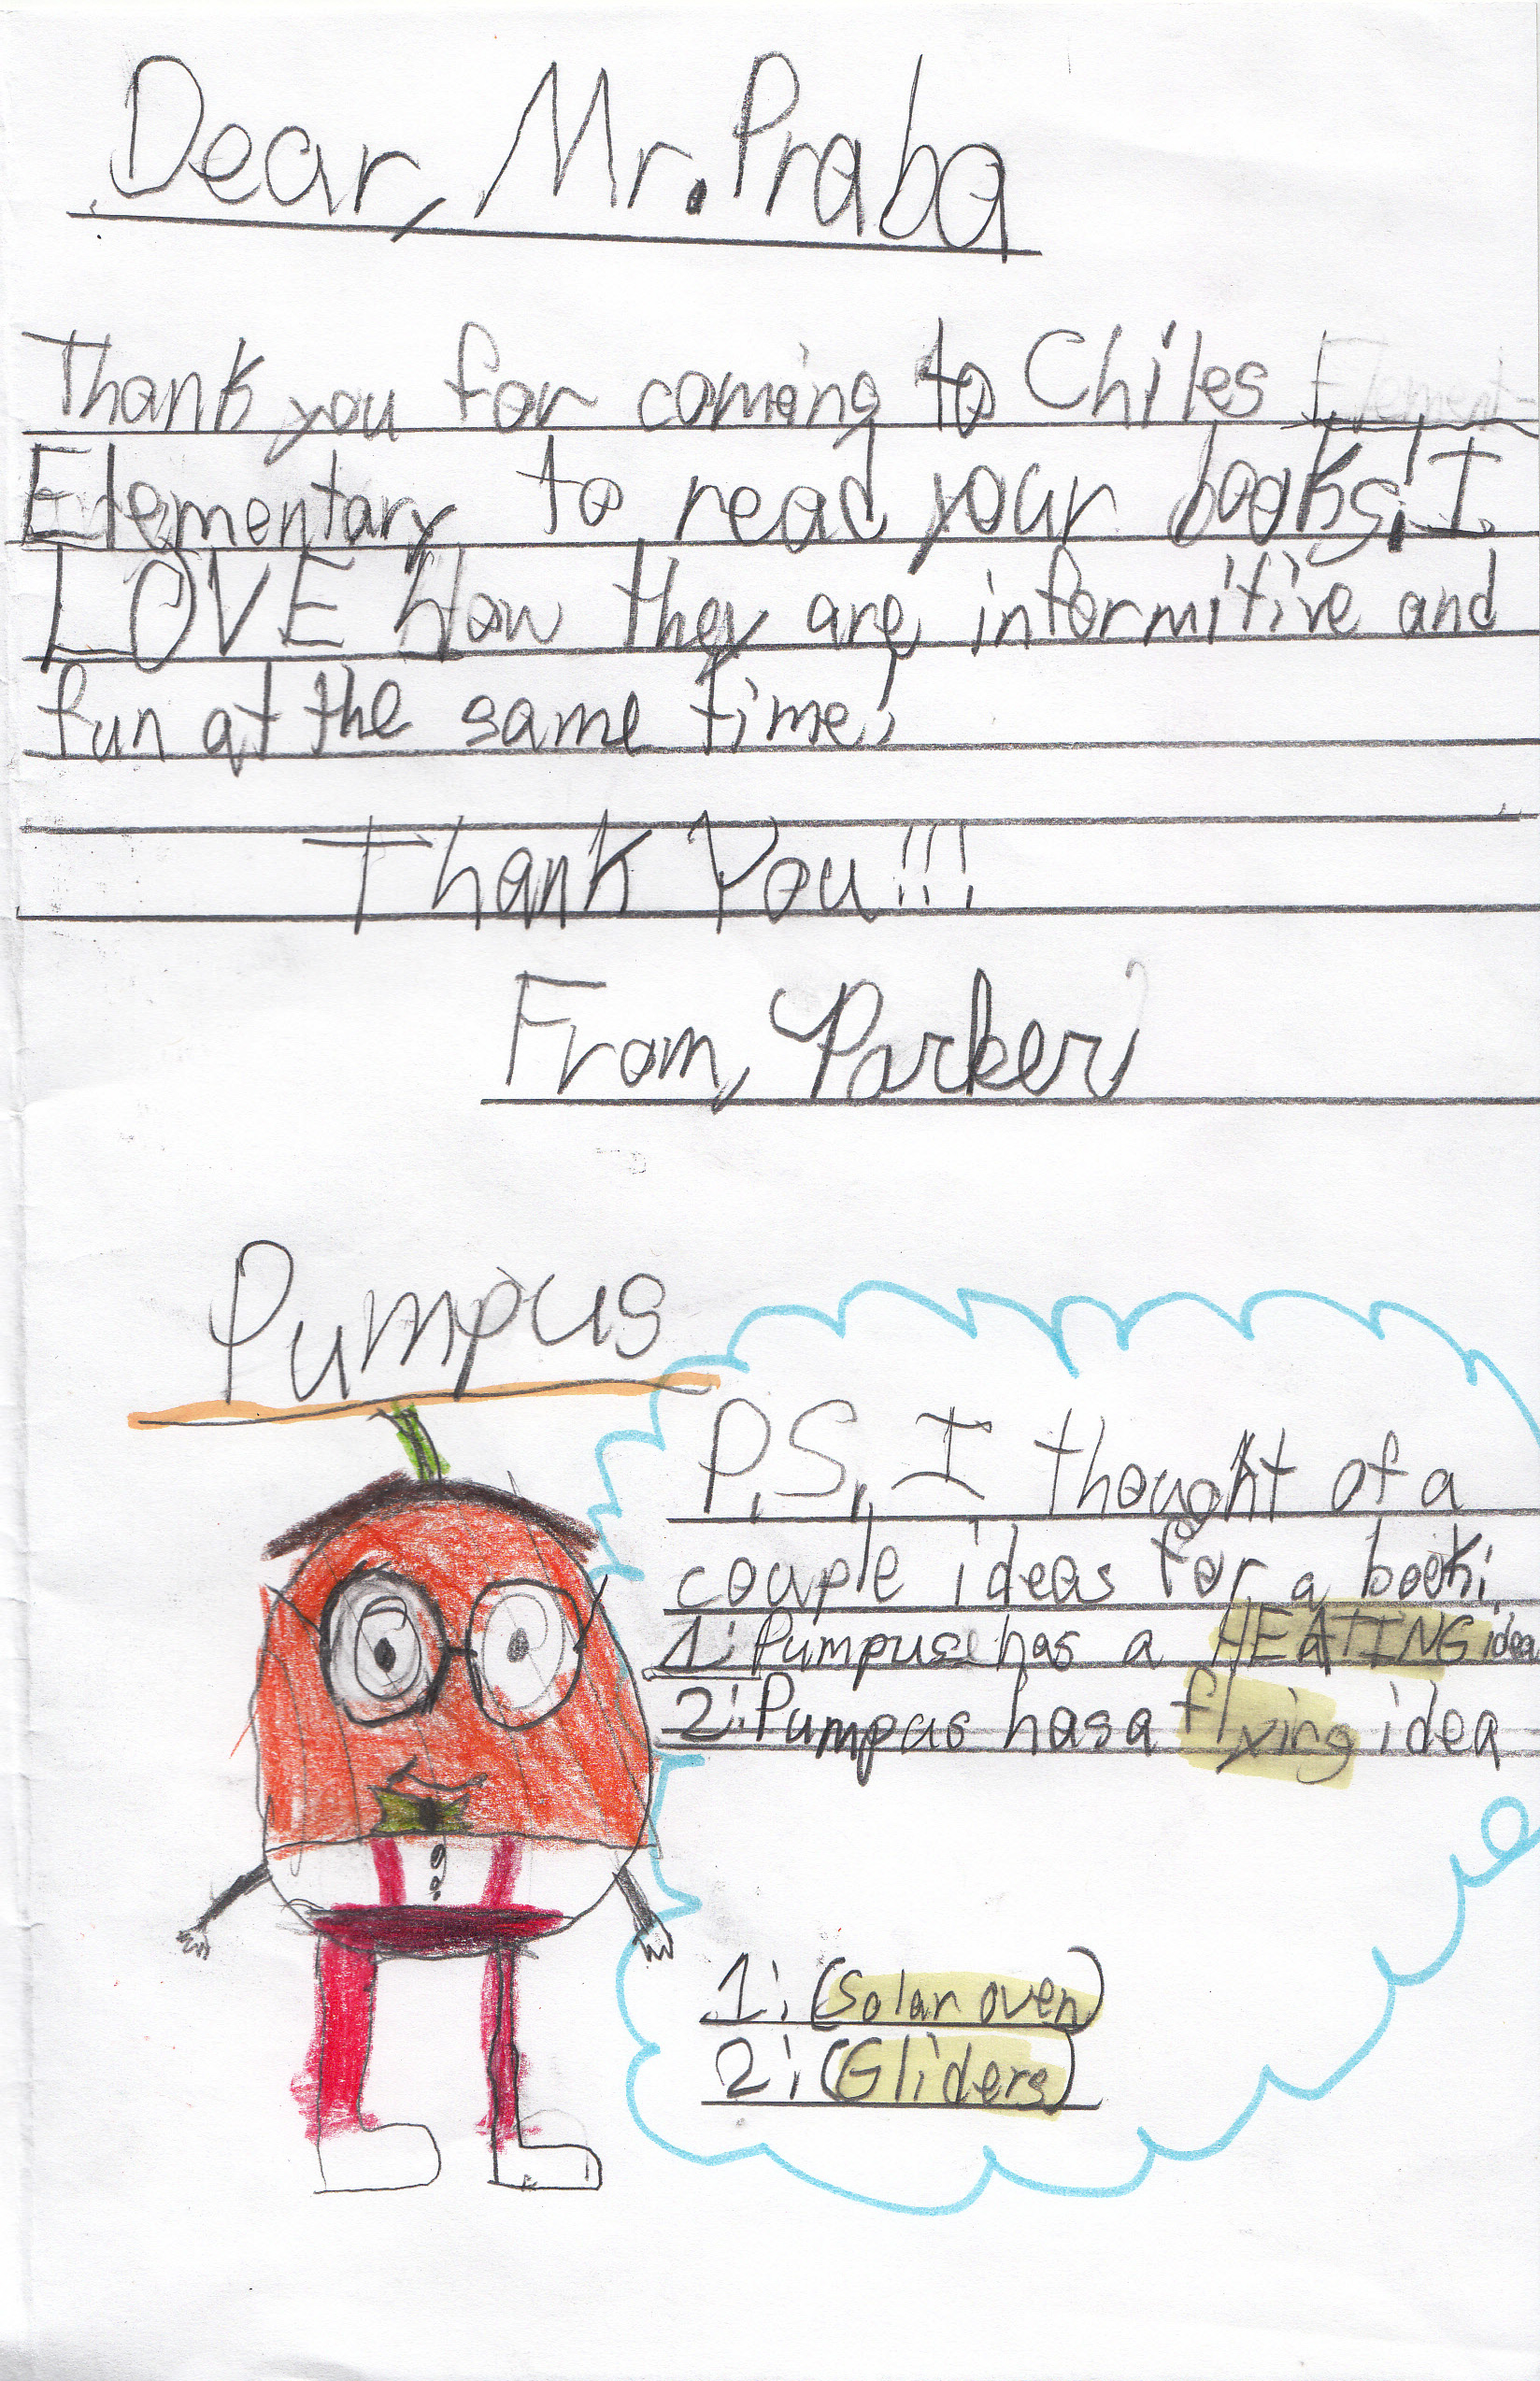 Dear, Mr. Praba
Thank you for coming to Chiles Element-
Elementary to read your books! I
LOVE How they are informitive and
fun at the same time!
Thank You!!!
From, Parker
Pumpus
P.S. I thought of a
couple ideas for a book:
1: Pumpus has a HEATING idea
2: Pumpus has a flying idea
1: (Solar oven)
2: (Gliders)